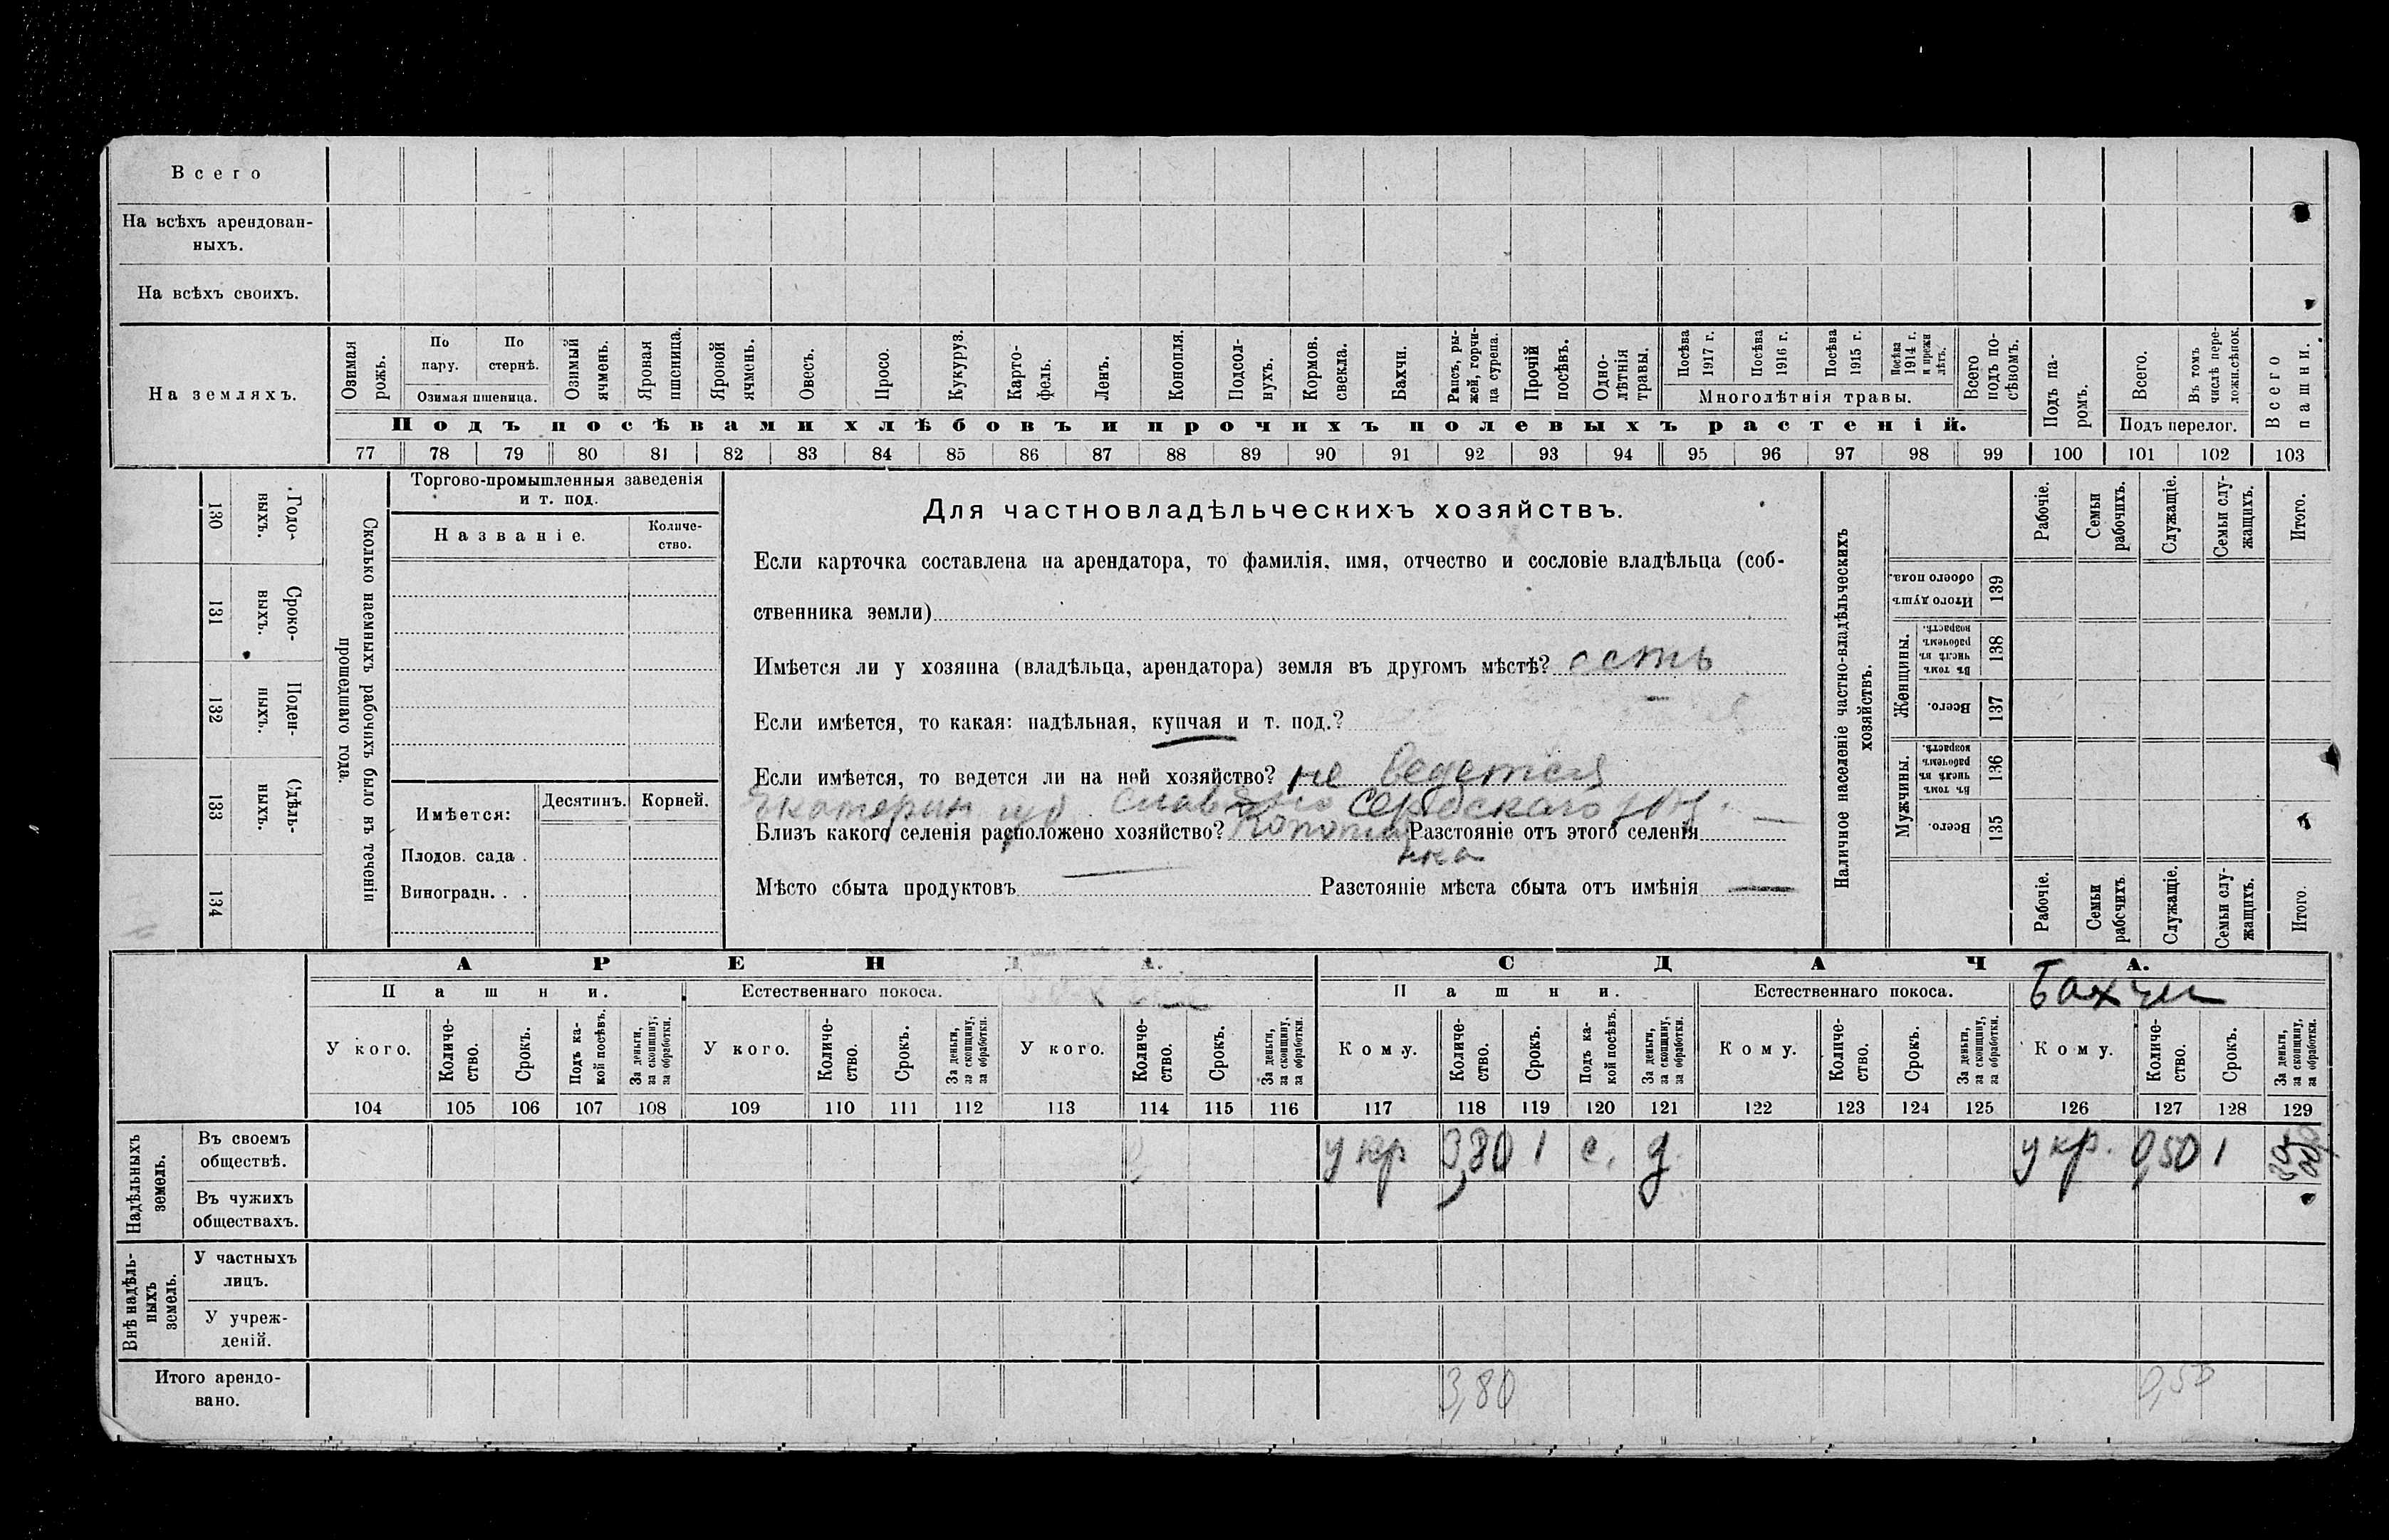 Всего
На всѣхъ арендован-
ныхъ.
На всѣхъ своихъ.
На земляхъ.
Озимая рожь.
По пару.
По стернѣ.
Озимая пшеница.
Озимый ячмень.
Яровая пшеница.
Яровой ячмень.
Овесъ.
Просо.
Кукуруз.
Карто-
фель.
Ленъ.
Конопля.
Подсол-
нухъ.
Кормов.
свекла.
Бахчи.
Рапсъ, ры-
жей, горчи-
ца сурепа.
Прочій
посѣвъ.
Одно-
лѣтнія
травы.
Посѣва
1917 г.
Посѣва
1916 г.
Посѣва
1915 г.
Посѣва
1914 г.
и прежн
лѣтъ.
Многолѣтнія травы.
Всего
подъ по-
сѣвомъ.
Подъ па-
ромъ.
Всего.
Въ томъ
числѣ пере-
ложн.сѣнок.
Подъ перелог.
Всего
пашни.
Подъ посѣвами хлѣбовъ и прочихъ полевыхъ растеній.
77 78 79 80 81 82 83 84 85 86 87 88 89 90 91 92 93 94 95 96 97 98 99 100 101 102 103
130
Годо-
выхъ.
131
Сроко-
выхъ.
132
Поден-
ныхъ.
133
Сдѣль-
ныхъ.
134
Сколько наемныхъ рабочихъ было въ теченіи
прошедшаго года.
Торгово-промышленныя заведенія
и т. под.
Названіе.
Количе-
ство.
Имѣется:
Десятинъ.
Корней.
Плодов. сада .
Виноградн. . .
Для частновладѣльческихъ хозяйствъ.
Если карточка составлена на арендатора, то фамилія, имя, отчество и сословіе владѣльца (соб-
ственника земли)
Имѣется ли у хозяина (владѣльца, арендатора) земля въ другомъ мѣстѣ? есть
Если имѣется, то какая: надѣльная, купчая и т. под.?
Если имѣется, то ведется ли на ней хозяйство? не ведется
Екатерин губ
Близъ какого селенія расположено хозяйство? Разстояніе отъ этого селенія
Мѣсто сбыта продуктовъ Разстояніе мѣста сбыта отъ имѣнія
Наличное населеніе частно-владѣльческихъ
хозяйствъ.
Рабочіе.
Семьи
рабочихъ.
Служащіе.
Семьи слу-
жащихъ.
Итого.
Итого душъ
обоего пола.
139
Женщины.
Въ томъ
числѣ въ
рабочемъ
возрастѣ.
138
Всего.
137
Мужчины.
Въ томъ
числѣ въ
рабочемъ
возрастѣ.
136
Всего.
135
Рабочіе.
Семьи
рабочихъ.
Служащіе.
Семьи слу-
жащихъ.
Итого.
АРЕНДА.
СДАЧА.
Пашни.
Естественнаго покоса.
Пашни.
Естественнаго покоса.
Бахчи
У кого.
Количе-
ство.
Срокъ.
Подъ ка-
кой посѣвъ.
За деньги,
за скопщину,
за обработки.
У кого.
Количе-
ство.
Срокъ.
За деньги,
за скопщину,
за обработки.
У кого.
Количе-
ство.
Срокъ.
За деньги,
за скопщину,
за обработки.
Кому.
Количе-
ство.
Срокъ.
Подъ ка-
кой посѣвъ.
За деньги,
за скопщину,
за обработки.
Кому.
Количе-
ство.
Срокъ.
За деньги,
за скопщину,
за обработки.
Кому.
Количе-
ство.
Срокъ.
За деньги,
за скопщину,
за обработки.
104 105 106 107 108 109 110 111 112 113 114 115 116 117 118 119 120 121 122 123 124 125 126 127 128 129
Надѣльныхъ
земель.
Въ своемъ
обществѣ.
у кр 3,80 1 с. д. у кр. 0,50 1
Въ чужихъ
обществахъ.
Внѣ надѣль-
ныхъ
земель.
У частныхъ
лицъ.
У учреж-
деній.
Итого арендо-
вано.
3,80 0,50